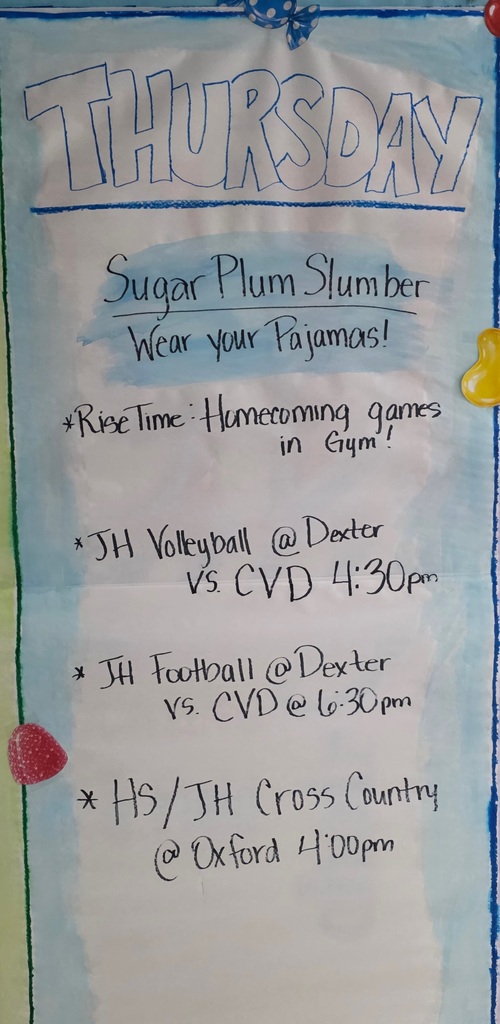 THURSDAY
Sugar Plum Slumber
Wear your Pajamas!
*Rise Time: Homecoming games
in Gym!
* JH Volleyball @ Dexter
vs. CVD 4:30pm
* JH Football @ Dexter
vs. CVD @ 6:30pm
* HS/JH Cross Country
@ Oxford 4:00pm